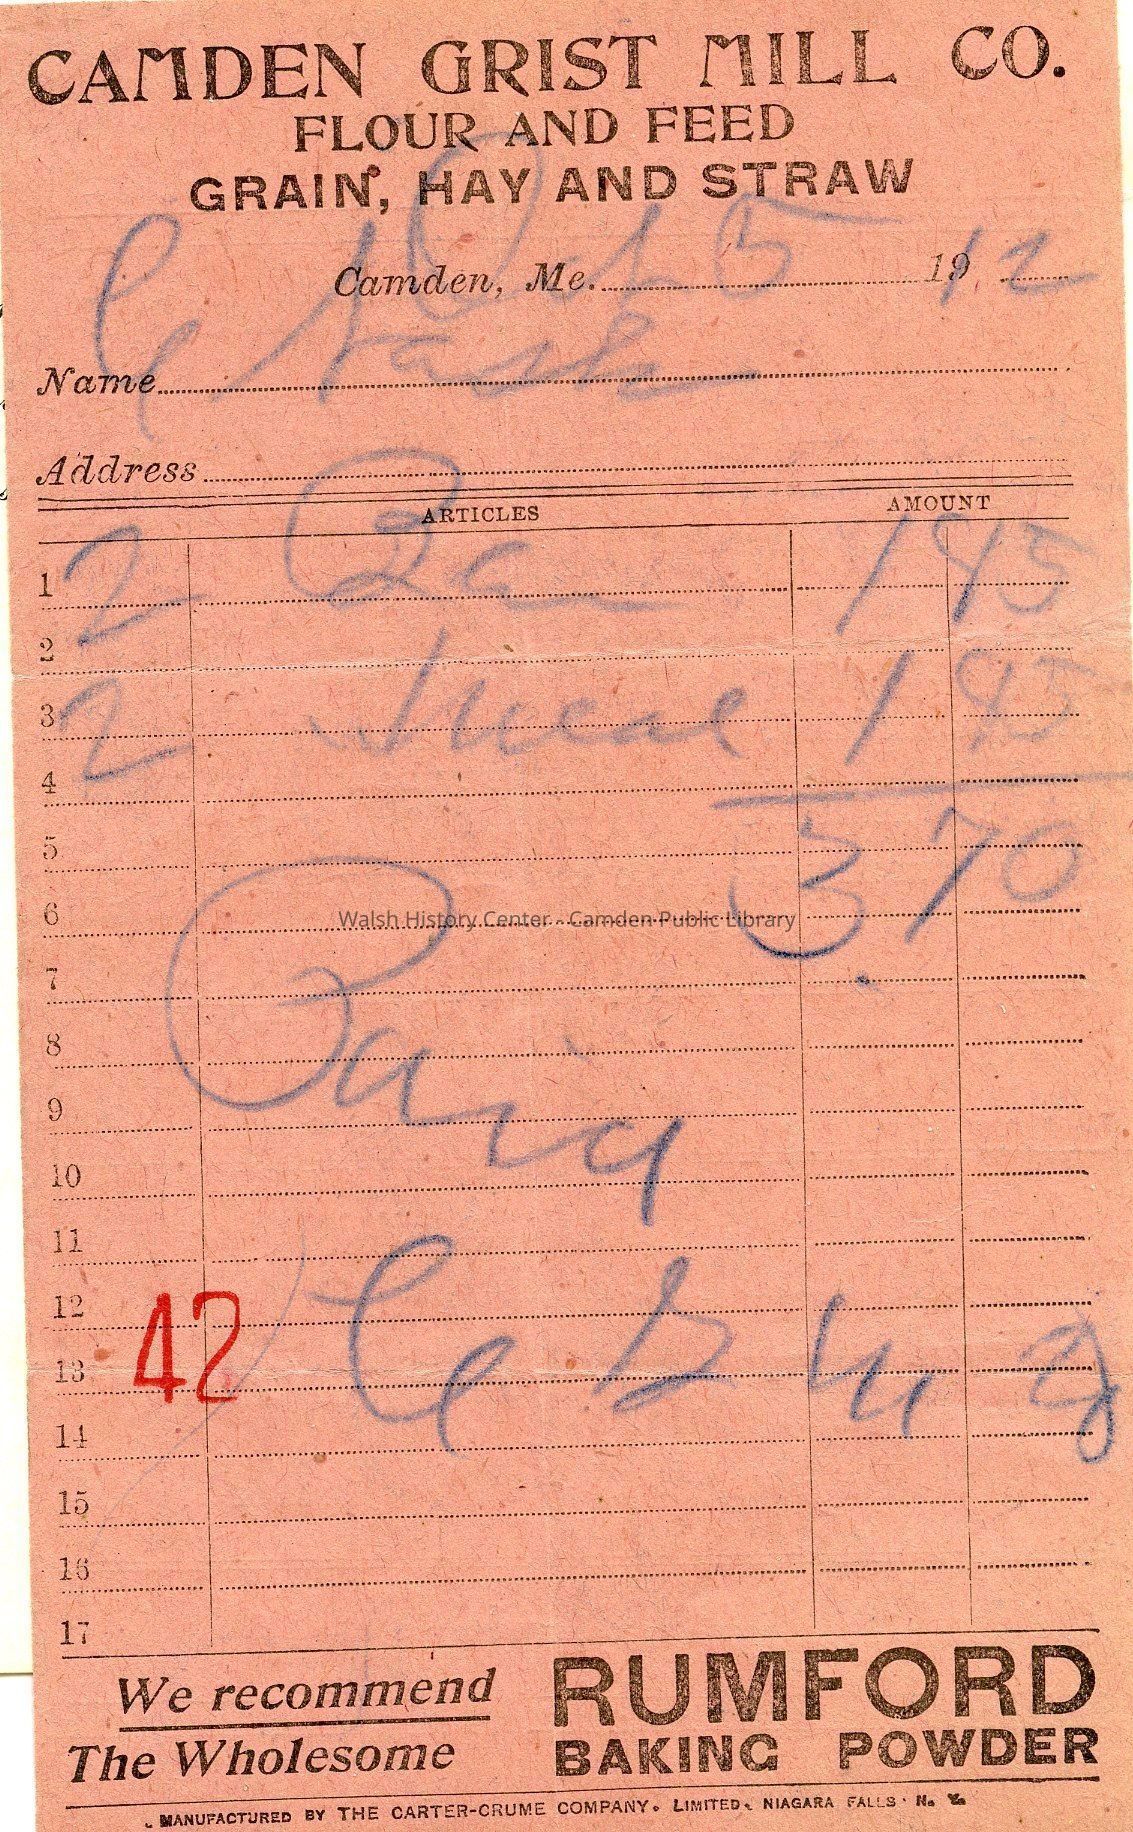 CAMDEN GRIST MILL CO.
FLOUR AND FEED
GRAIN, HAY AND STRAW
Camden, Me. Oct 5 1912
Name
Address
ARTICLES AMOUNT
1 2 1 85
2
3 2 Meal 1 85
4
5 3.70
6
Walsh History Center - Camden Public Library
7
8 Paid
9
10
11
12
42
13
14
15
16
17
We recommend RUMFORD
The Wholesome BAKING POWDER
MANUFACTURED BY THE CARTER-CRUME COMPANY, LIMITED, NIAGARA FALLS, N. Y.